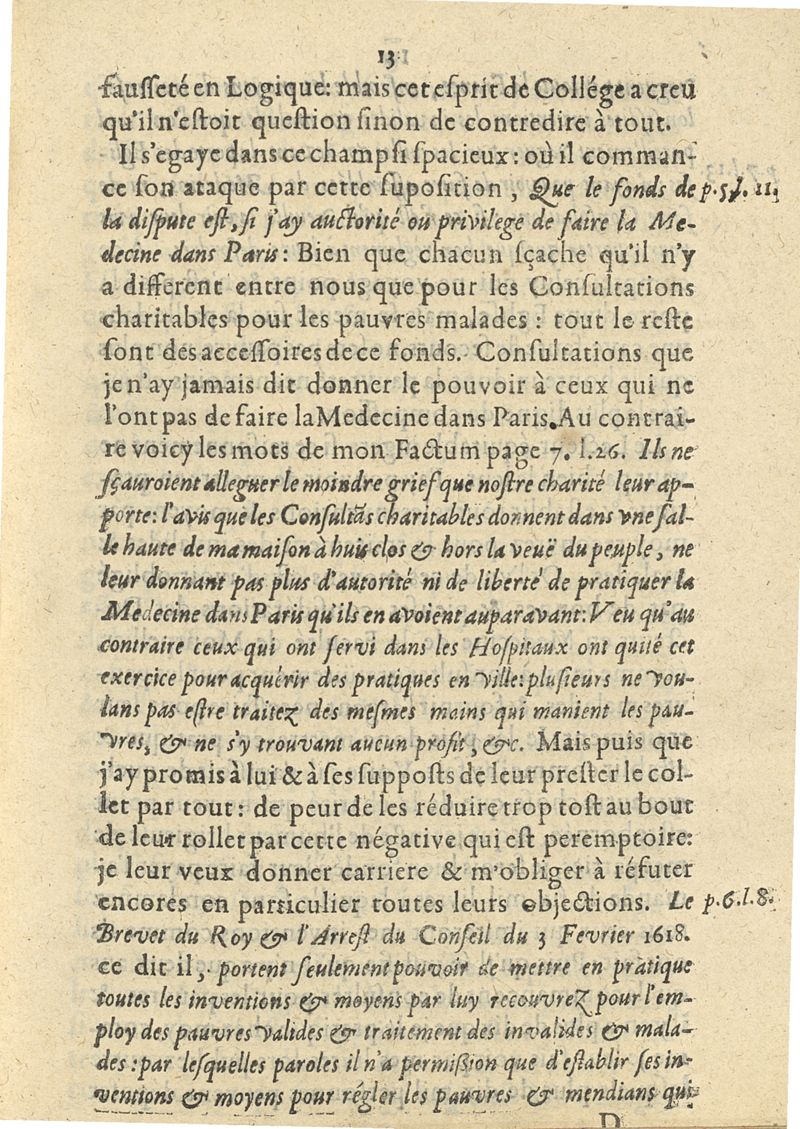 13
fausseté en Logique: mais cet esprit de Collége a creu
qu'il n'estoit question sinon de contredire à tout.
Il s'egaye dans ce champ si spacieux: où il comman-
ce son ataque par cette suposition, Que le fonds de p.5.l.11.
la dispute est, si j'ay auctorité ou privilege de faire la Me-
decine dans Paris: Bien que chacun sçache qu'il n'y
a different entre nous que pour les Consultations
charitables pour les pauvres malades: tout le reste
sont des accessoires de ce fonds. Consultations que
je n'ay jamais dit donner le pouvoir à ceux qui ne
l'ont pas de faire la Medecine dans Paris. Au contrai-
re voicy les mots de mon Factum page 7. l.26. Ils ne
sçauroient alleguer le moindre grief que nostre charité leur ap-
porte: l'avis que les Consultãs charitables donnent dans vne sal-
le haute de ma maison à huis clos & hors la veuë du peuple, ne
leur donnant pas plus d'autorité ni de liberté de pratiquer la
Medecine dans Paris qu'ils en avoient auparavant: Veu qu'au
contraire ceux qui ont servi dans les Hospitaux ont quité cet
exercice pour acquérir des pratiques en ville: plusieurs ne vou-
lans pas estre traitez des mesmes mains qui manient les pau-
vres, & ne s'y trouvant aucun profit, &c. Mais puis que
j'ay promis à lui & à ses supposts de leur prester le col-
let par tout: de peur de les réduire trop tost au bout
de leur rollet par cette négative qui est peremptoire:
je leur veux donner carriere & m'obliger à réfuter
encores en particulier toutes leurs objections. Le p.6.l.8.
Brevet du Roy & l'Arrest du Conseil du 3 Fevrier 1618.
ce dit il, portent seulement pouvoir de mettre en pratique
toutes les inventions & moyens par luy recouvrez pour l'em-
ploy des pauvres valides & traitement des invalides & mala-
des: par lesquelles paroles il n'a permission que d'establir ses in-
ventions & moyens pour régler les pauvres & mendians qui
D